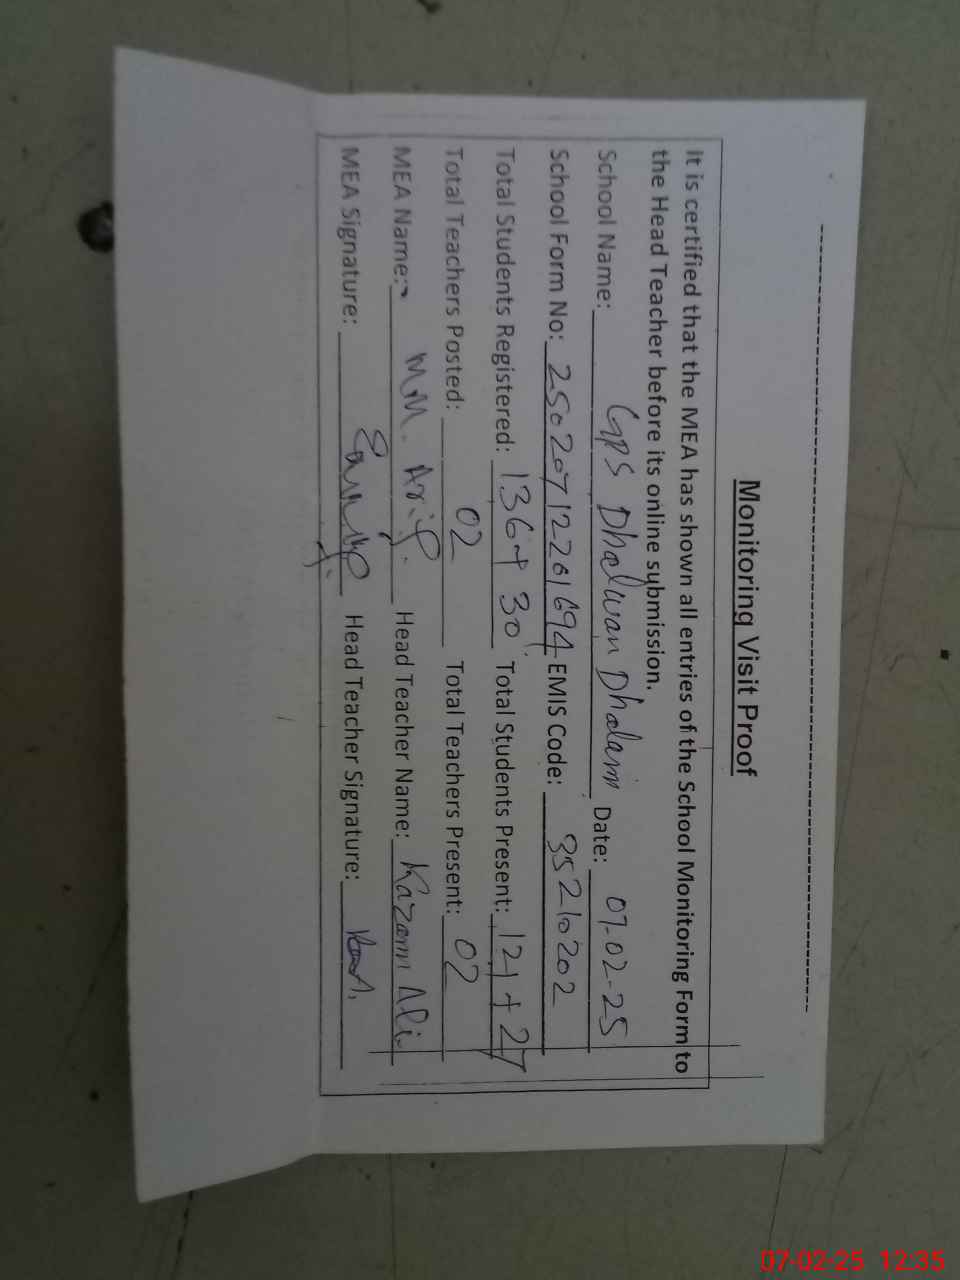 Monitoring Visit Proof
It is certified that the MEA has shown all entries of the School Monitoring Form to
the Head Teacher before its online submission.
School Name: GPS Dhalwan Dhalam Date: 07-02-25
School Form No: 25020712201694 EMIS Code: 35210202
Total Students Registered: 136+30 Total Students Present: 121+27
Total Teachers Posted: 02 Total Teachers Present: 02
MEA Name: M.M. Arif. Head Teacher Name: Kazam Ali
MEA Signature: Head Teacher Signature:
07-02-25 12:35